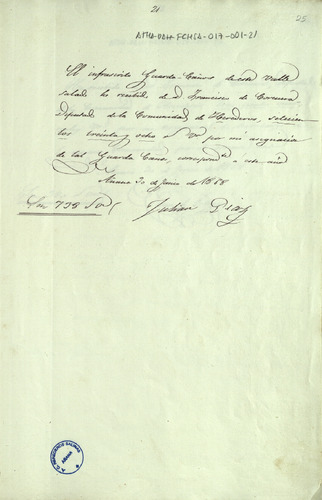 21
25
ATHA-DAH-FCMSA-017-001-21
El infrascrito Guarda-Caños de este Valle
salado ha recibido de D. Francisco de
Diputado de la Comunidad de Herederos, setecien
tos treinta y ocho r.s v.n por mi asignacion
de tal Guarda Caños, correspond.te a este año
Añana 30 de Junio de 1868
Son 738 r.s v.n
Julian Diaz
AÑANA